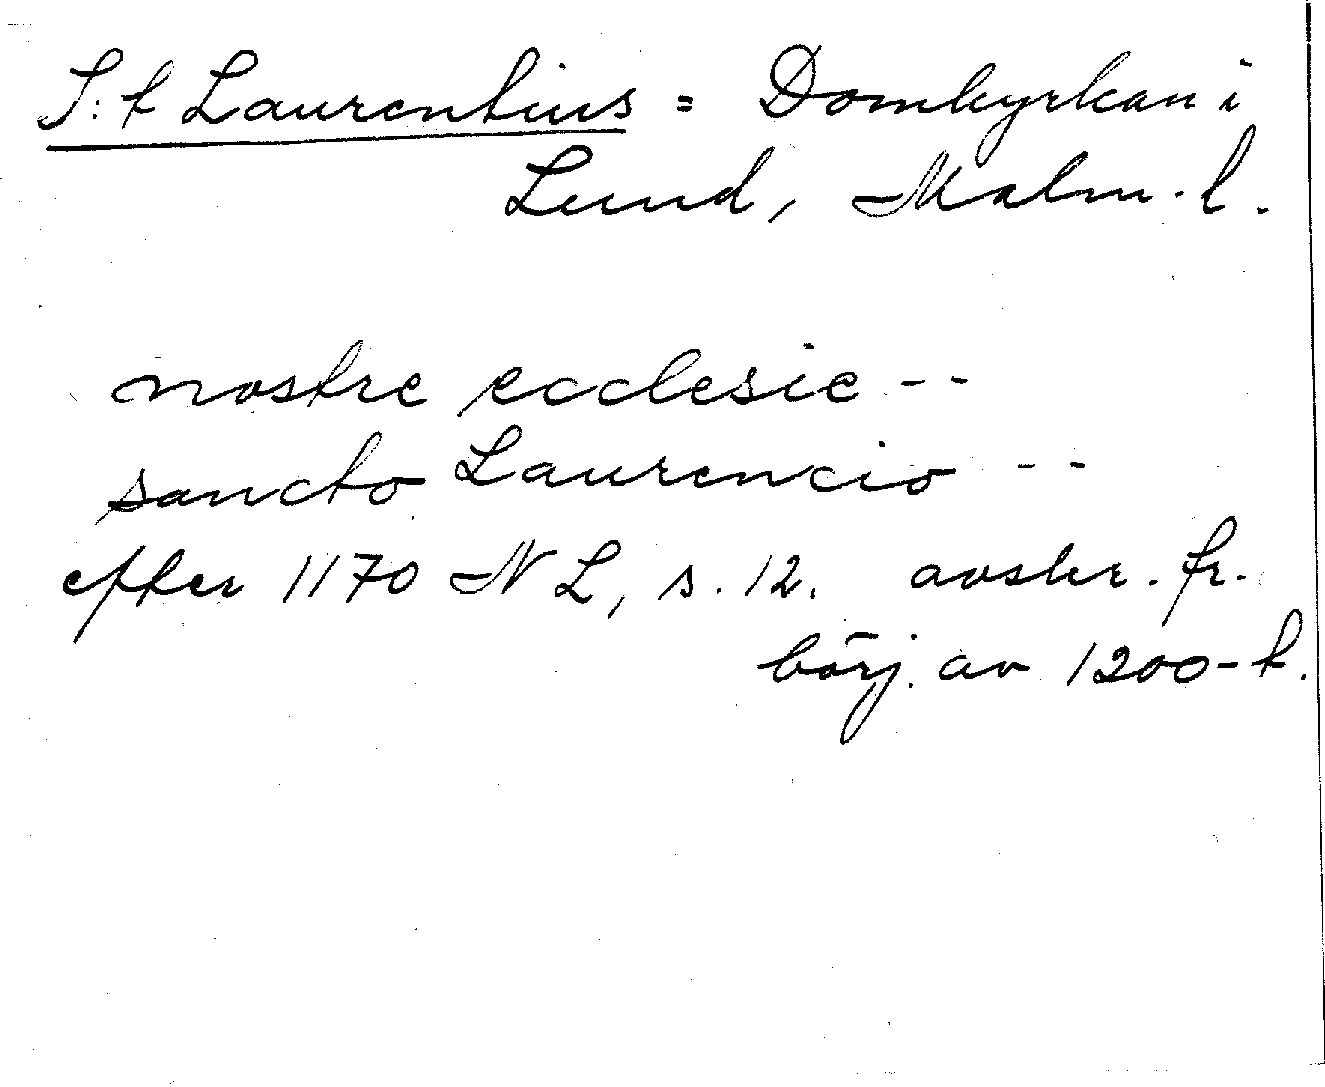 S:t Laurentius = Domkyrkan i
Lund, Malm. l.
nostre ecclesie --
sancto Laurencio --
efter 1170 NL, s. 12. avskr. fr.
börj. av 1200-t.